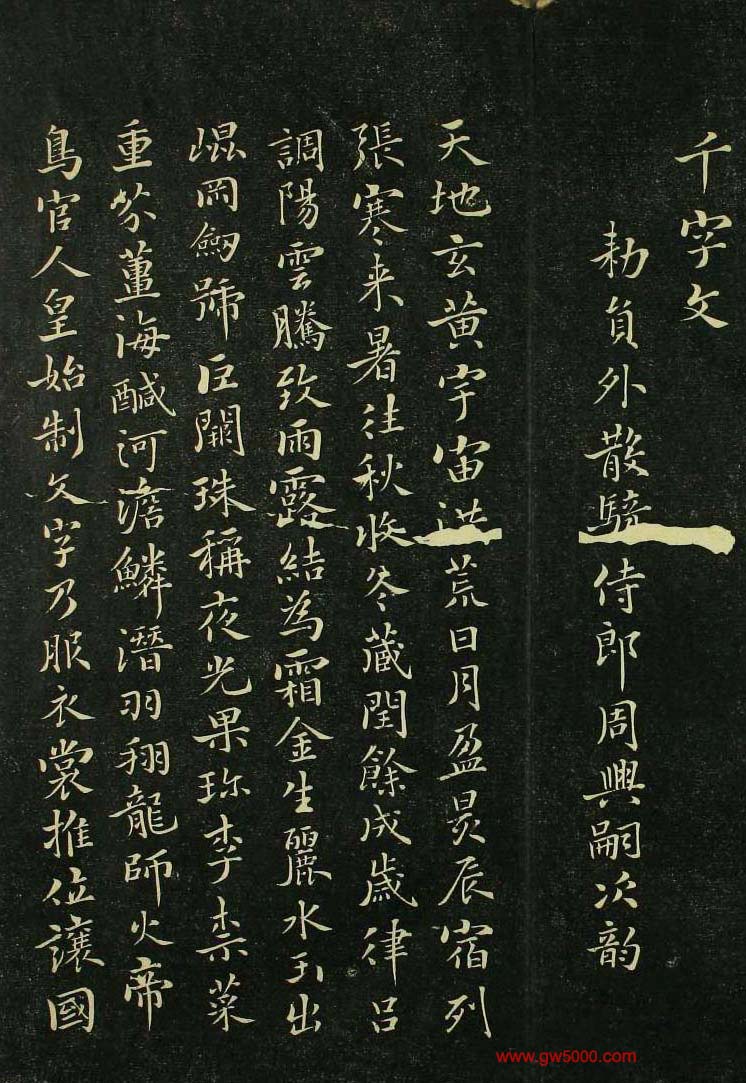 千字文
勑員外散騎侍郎周興嗣次韵
天地玄黄宇宙洪荒日月盈昃辰宿列
張寒来暑往秋收冬蔵閏餘成歳律吕
調陽雲騰致雨露結為霜金生麗水玉出
崐岡劔號巨闕珠稱夜光果珎李柰菜
重芥薑海醎河澹鱗潛羽翔龍師火帝
鳥官人皇始制文字乃服衣裳推位讓國
www.gw5000.com